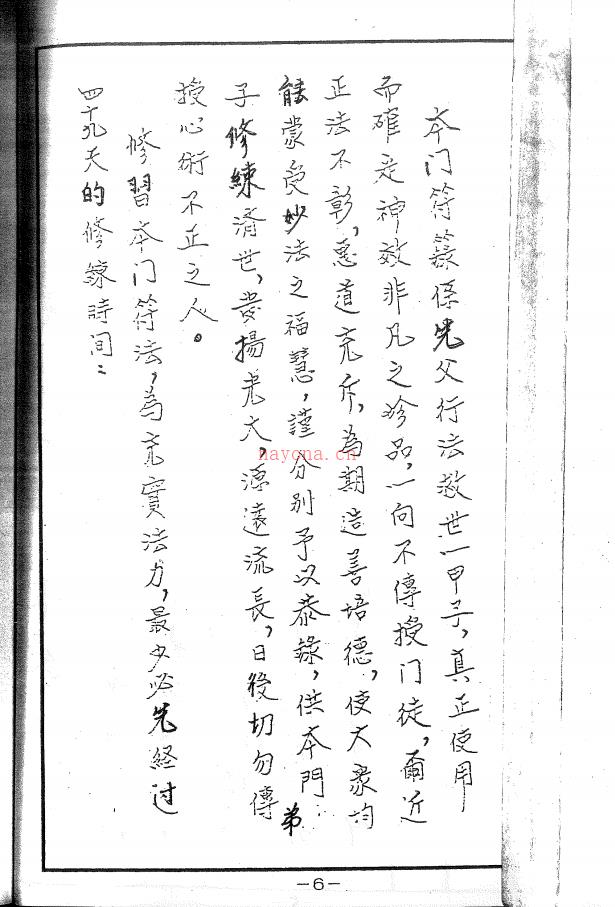 本门符籙係先父行法救世一甲子，真正使用
而確是神效非凡之珍品，一向不傳授门徒，爾近
正法不彰，惡道充斥，為期造善培德，使大衆均
能蒙受妙法之福慧，謹分别予以恭錄，供本門弟
子修練済世，發揚光大，源遠流長，日後切勿傳
授心術不正之人。
修習本门符法，為充實法力，最少必先経过
四十九天的修鍊時间：
hayqna.cn
-6-